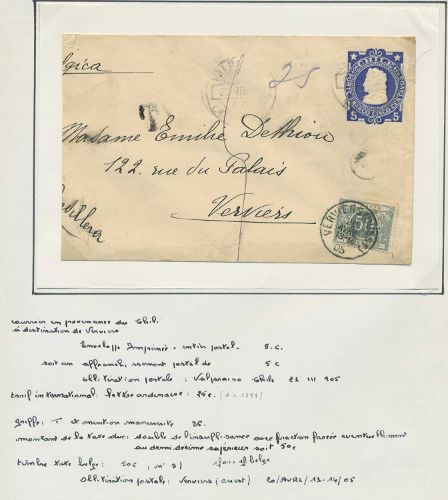 25
lgica
CINCO CENTAVOS
5 5
T
Madame Emilie Dethiou
122, rue du Palais
Verviers
Cordillera
50
VERVIERS
05
courrier en provenance du Chili
à destination de Verviers
Enveloppe Imprimée - entier postal - 5 c.
soit un affranchissement postal de 5 c
Oblitération postale : Valparaiso Chile 23 III 905
tarif international : lettre ordinaire : 25c. (1.1.1899)
griffe T et mention manuscrite 25.
montant de la taxe due : double de l'insuffisance avec fraction forcée éventuellement
au demi décime supérieur soit 50c
timbre taxe belge : 50c (n° 9)
Oblitération postale : Verviers (ouest) 20/AVRI/13-14/05